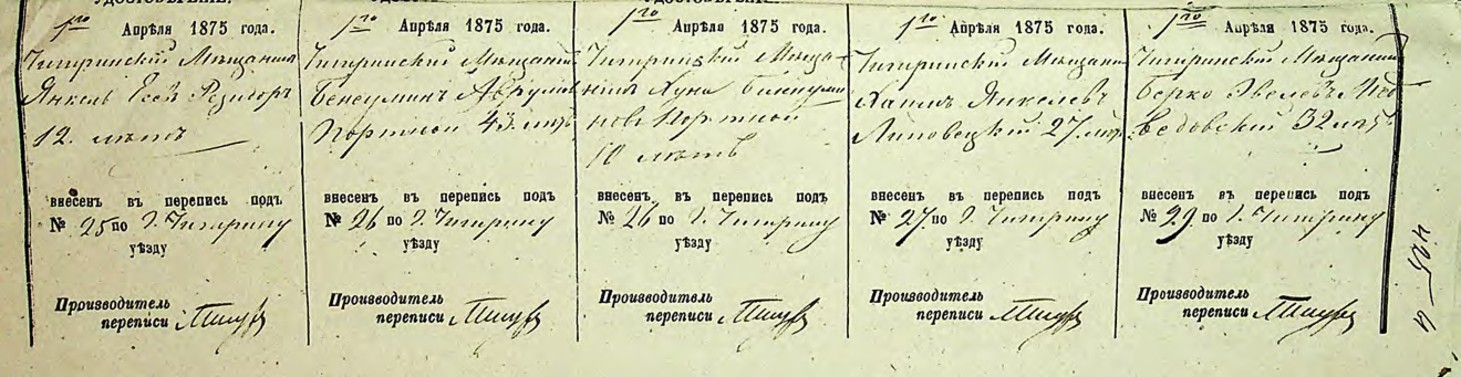 УДОСТОВѢРЕНІЕ.
1го Апрѣля 1875 года.
Чигринскій Мѣщанинъ
Янкель
12. лѣтъ
внесенъ въ перепись подъ
№ 25 по г. Чигрину
уѣзду
Производитель
переписи
1го Апрѣля 1875 года.
Чигринскій Мѣщанинъ
Бенеуминъ Аврумов
Портной 43. лѣтъ
внесенъ въ перепись подъ
№ 26 по г. Чигрину
уѣзду
Производитель
переписи
1го Апрѣля 1875 года.
Чигринскій Мѣща-
нинъ Хуна
новъ Портной
10 лѣтъ
внесенъ въ перепись подъ
№ 26 по г. Чигрину
уѣзду
Производитель
переписи
1го Апрѣля 1875 года.
Чигринскій Мѣщанин
Янкелевъ
Липовецкій 27. лѣт
внесенъ въ перепись подъ
№ 27 по г. Чигрину
уѣзду
Производитель
переписи
1го Апрѣля 1875 года.
Чигринскій Мѣщанин
Берко Эвелевъ Мед
ведовскій 32 лѣт
внесенъ въ перепись подъ
№ 29 по г. Чигрину
уѣзду
Производитель
переписи